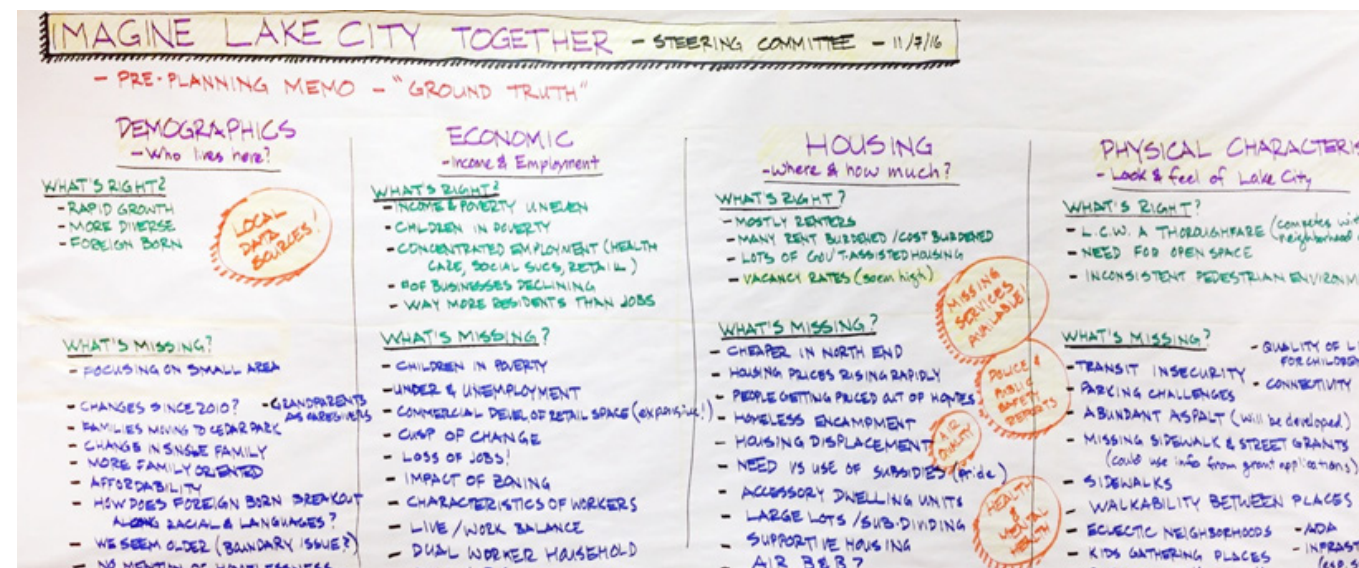 IMAGINE LAKE CITY TOGETHER - STEERING COMMITTEE - 11/7/16
- PRE-PLANNING MEMO - "GROUND TRUTH"
DEMOGRAPHICS
- Who lives here?
WHAT'S RIGHT?
- RAPID GROWTH
- MORE DIVERSE
- FOREIGN BORN
LOCAL
DATA
SOURCES!
WHAT'S MISSING?
- FOCUSING ON SMALL AREA
- CHANGES SINCE 2010?
- GRANDPARENTS
AS CAREGIVERS
- FAMILIES MOVING TO CEDAR PARK
- CHANGE IN SINGLE FAMILY
- MORE FAMILY ORIENTED
- AFFORDABILITY
- HOW DOES FOREIGN BORN BREAKOUT
ALONG RACIAL & LANGUAGES?
- WE SEEM OLDER (BOUNDARY ISSUE?)
- NO MENTION OF HOMELESSNESS
ECONOMIC
- Income & Employment
WHAT'S RIGHT?
- INCOME & POVERTY UNEVEN
- CHILDREN IN POVERTY
- CONCENTRATED EMPLOYMENT (HEALTH
CARE, SOCIAL SVCS, RETAIL)
- # OF BUSINESSES DECLINING
- WAY MORE RESIDENTS THAN JOBS
WHAT'S MISSING?
- CHILDREN IN POVERTY
- UNDER & UNEMPLOYMENT
- COMMERCIAL DEVEL OF RETAIL SPACE (expansive!)
- CUSP OF CHANGE
- LOSS OF JOBS!
- IMPACT OF ZONING
- CHARACTERISTICS OF WORKERS
- LIVE/WORK BALANCE
- DUAL WORKER HOUSEHOLD
HOUSING
- Where & how much?
WHAT'S RIGHT?
- MOSTLY RENTERS
- MANY RENT BURDENED/COST BURDENED
- LOTS OF GOV'T-ASSISTED HOUSING
- VACANCY RATES (seem high)
MISSING
SERVICES
AVAILABLE!
WHAT'S MISSING?
- CHEAPER IN NORTH END
- HOUSING PRICES RISING RAPIDLY
- PEOPLE GETTING PRICED OUT OF HOMES
- HOMELESS ENCAMPMENT
- HOUSING DISPLACEMENT
- NEED VS USE OF SUBSIDIES (Pride)
- ACCESSORY DWELLING UNITS
- LARGE LOTS/SUB-DIVIDING
- SUPPORTIVE HOUSING
- AIR B&B?
POLICE &
PUBLIC
SAFETY
REPORTS
AIR
QUALITY
HEALTH
&
MENTAL
HEALTH
PHYSICAL CHARACTERIS
- Look & feel of Lake City
WHAT'S RIGHT?
- L.C.W. A THOROUGHFARE (competes with
neighborhood
- NEED FOR OPEN SPACE
- INCONSISTENT PEDESTRIAN ENVIRONM
WHAT'S MISSING?
- QUALITY OF LI
FOR CHILDREN
- TRANSIT INSECURITY
- CONNECTIVITY
- PARKING CHALLENGES
- ABUNDANT ASPALT (will be developed)
- MISSING SIDEWALK & STREET GRANTS
(could use info from grant applications)
- SIDEWALKS
- WALKABILITY BETWEEN PLACES
- ECLECTIC NEIGHBORHOODS
- ADA
- KIDS GATHERING PLACES
- INFRAST
(esp. s